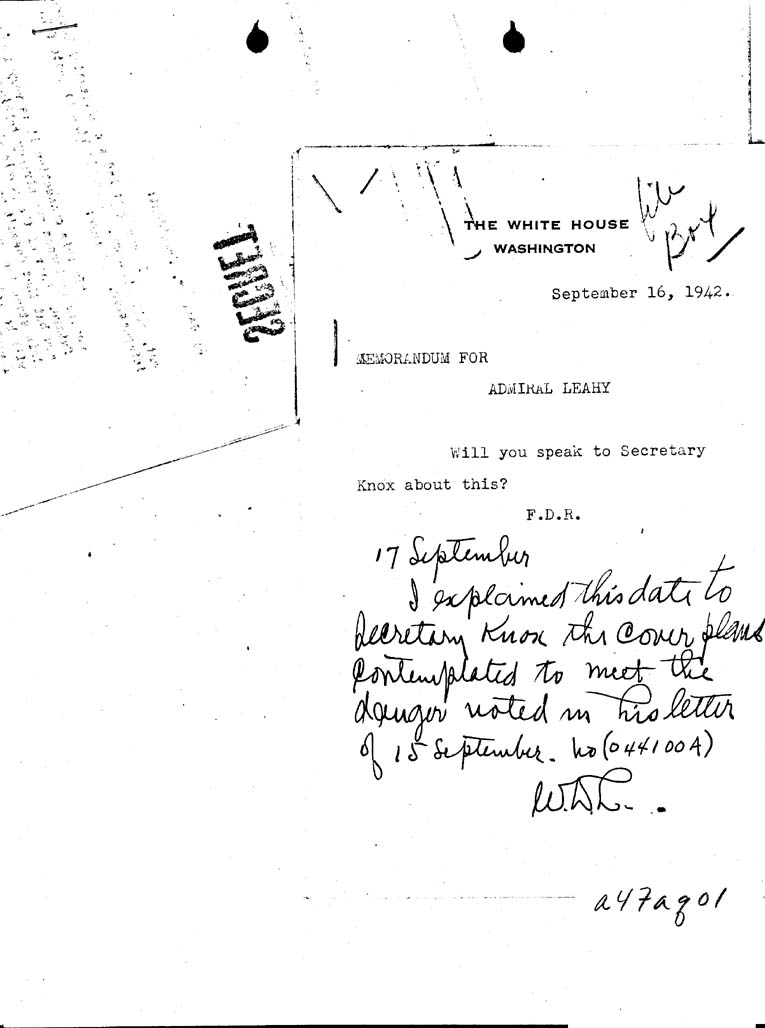 THE WHITE HOUSE
WASHINGTON
file
Box
September 16, 1942.
SECRET
MEMORANDUM FOR
ADMIRAL LEAHY
Will you speak to Secretary
Knox about this?
F.D.R.
17 September
I explained this date to
Secretary Knox the cover plans
contemplated to meet the
danger noted in his letter
of 15 September. no (044100A)
W.D.L.
a47aq01